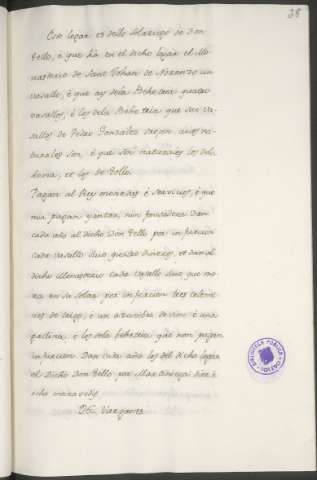 28
Este logar es dello solariego de Don
Tello, é que ha en el dicho logar el Mo-
nasterio de Sant Johan de un
vasallo, é que ay dela Behetria quatro
vasallos, é los dela Behetria que son va-
sallos de Pedro Gonzalez
turales son, é que son naturales los dela
et los de Tello.
Pagan al Rey monedas é servicios, é que
nin pagan yantar, nin fonsadera Dan
cada año al dicho Don Tello por infurcion
cada vasallo dineros, et dan al
dicho Monasterio cada vasallo suyo que mo-
ra en su solar por infurcion tres celemi-
nes de trigo, é un de vino é una
gallina, é los dela behetria que non pagan
infurcion. Dan cada año los del dicho logar
al dicho Don Tello por Martiniega diez é
ocho maravedis.
BIBLIOTECA PUBLICA
TOLEDO